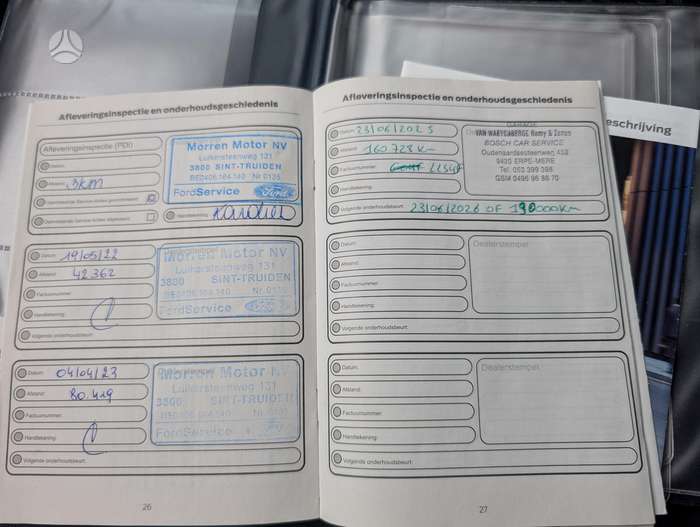 Afleveringsinspectie en onderhoudsgeschiedenis
Afleveringsinspectie (PDI)
Datum:
Afstand: 3km
Handtekening:
Morren Motor NV
Luikersteenweg 131
3800 SINT-TRUIDEN
FordService Ford
Datum: 19/05/22
Afstand: 42 362
Factuurnummer:
Handtekening:
Volgende onderhoudsbeurt:
Morren Motor NV
Luikersteenweg 131
3800 SINT-TRUIDEN
FordService
Datum: 04/04/23
Afstand: 80.419
Factuurnummer:
Handtekening:
Volgende onderhoudsbeurt:
Morren Motor N
Luikersteenweg 131
3800 SINT-TRUIDEN
FordService
26
Afleveringsinspectie en onderhoudsgeschiedenis
Datum: 23/06/2025
Afstand: 160 728 km
Factuurnummer:
Handtekening:
Volgende onderhoudsbeurt: 23/06/2026 OF 190000km
GARAGE
BOSCH CAR SERVICE
Oudenaardsesteenweg, 452
9420 ERPE-MERE
Datum:
Afstand:
Factuurnummer:
Handtekening:
Volgende onderhoudsbeurt:
Dealerstempel:
Datum:
Afstand:
Factuurnummer:
Handtekening:
Volgende onderhoudsbeurt:
Dealerstempel:
27
eschrijving